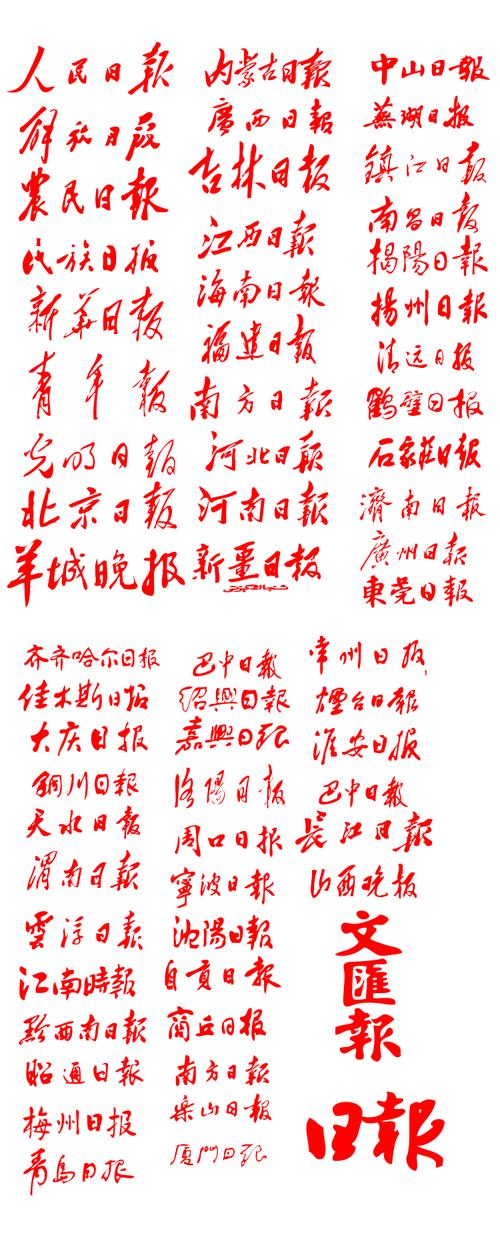 人民日報
解放日报
農民日報
民族日报
新華日報
青年報
光明日報
北京日報
羊城晚报
内蒙古日報
廣西日報
吉林日报
江西日報
海南日報
福建日報
南方日報
河北日報
河南日報
新疆日报
中山日報
蕪湖日报
鎮江日報
南昌日報
揭陽日報
揚州日報
清远日报
鶴壁日报
石家莊日報
濟南日報
廣州日報
東莞日報
齐齐哈尔日报
佳木斯日报
大庆日报
銅川日報
天水日報
渭南日報
雲浮日報
江南時報
黔西南日報
昭通日報
梅州日报
青島日报
巴中日報
紹興日報
嘉興日报
洛陽日报
周口日报
寧波日報
沈陽日報
自貢日報
商丘日报
南方日報
乐山日報
厦门日报
常州日报
煙台日報
淮安日报
巴中日報
長江日報
山西晚报
文
匯
報
日報